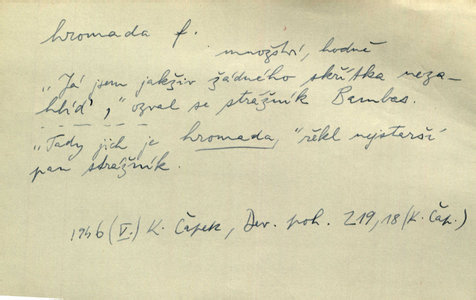 hromada f.
množství, hodně
„Já jsem jakživ žádného skřítka neza-
hlíd'," ozval se strážník Bambas.
„Tady jich je hromada," řekl nejstarší
pan strážník.
1946 (V.) K. Čapek, Dev. poh. 219,18 (K. Čap.)